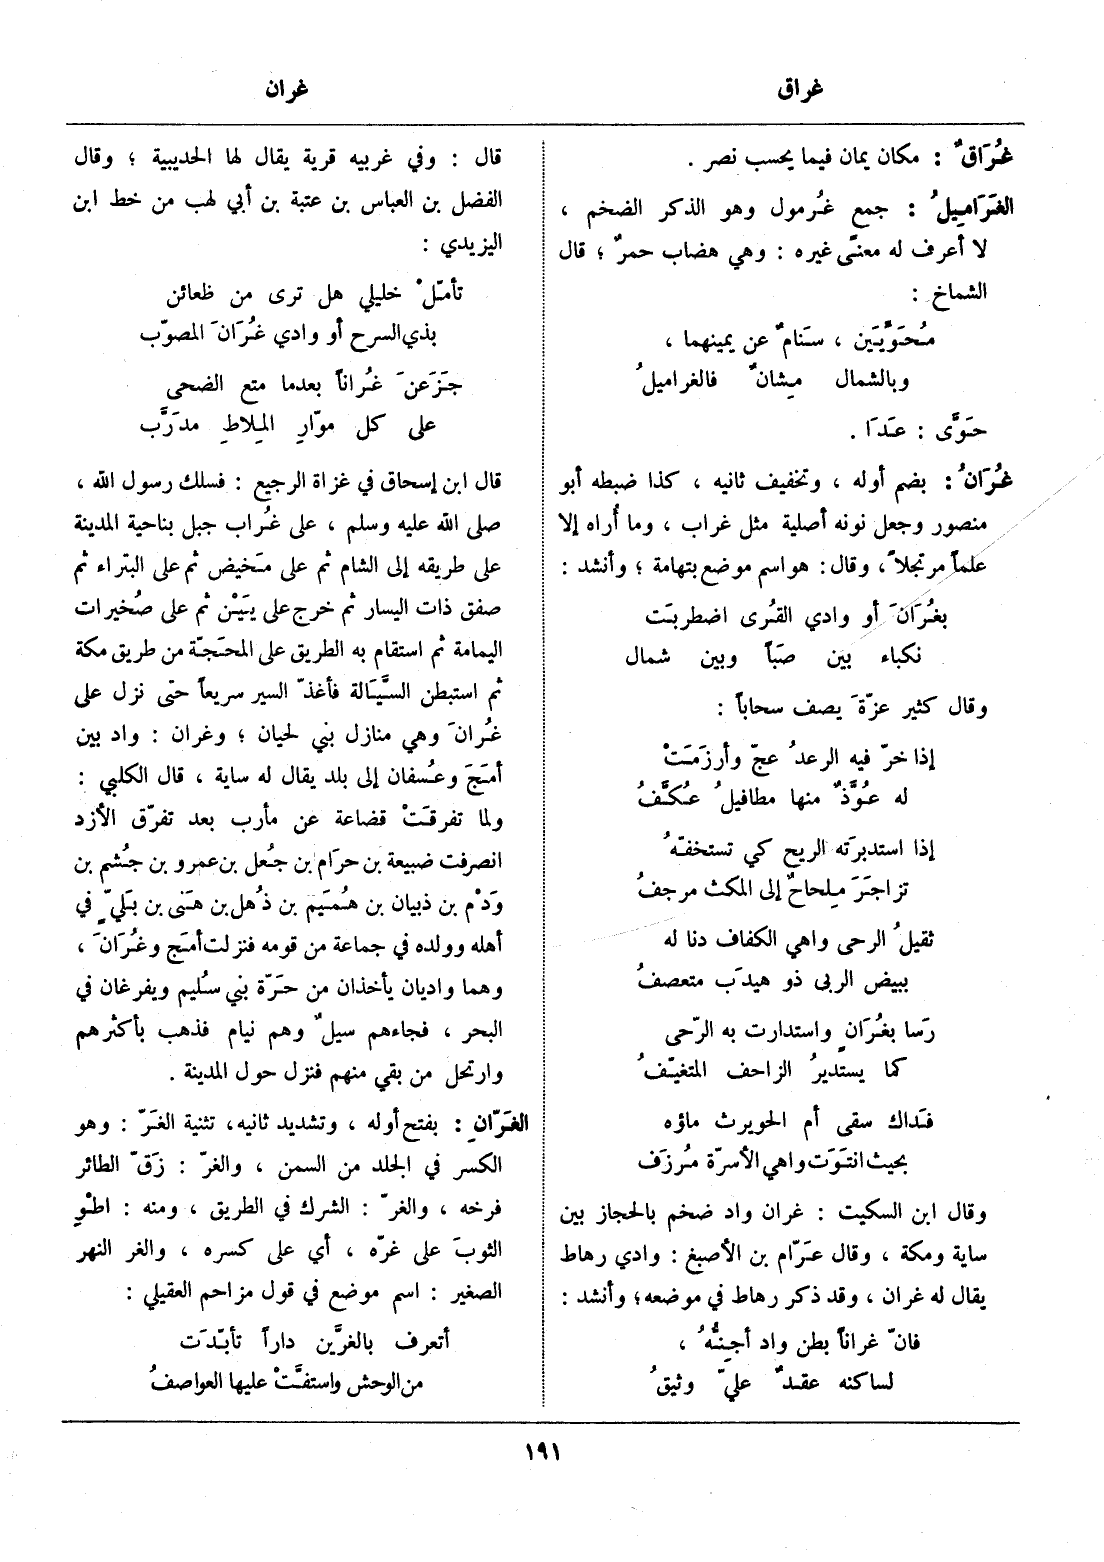 غراق
غران
غُرَاقٌ : مكان يمان فيما يحسب نصر .
الغَرَامِيلُ : جمع غُرمول وهو الذكر الضخم ،
لا أعرف له معنًى غيره : وهي هضاب حمرٌ ؛ قال
الشماخ :
مُحَوَّيَين ، سَنامٌ عن يمينهما ،
وبالشمال مِشانٌ فالغراميلُ
حَوَّى : عَدَا .
غُرَانُ : بضم أوله ، وتخفيف ثانيه ، كذا ضبطه أبو
منصور وجعل نونه أصلية مثل غراب ، وما أُراه إلا
علماً مرتجلاً ، وقال : هو اسم موضع بتهامة ؛ وأنشد :
بغُرَانَ أو وادي القُرى اضطربَت
نكباء بين صَباً وبين شمال
وقال كثير عزّةَ يصف سحاباً :
إذا خرّ فيه الرعدُ عجّ وأرزَمَتْ
له عُوَّذٌ منها مطافيلُ عُكَّفُ
إذا استدبرته الريح كي تستخفّهُ
تزاجَرَ مِلحاحٌ إلى المكث مرجفُ
ثقيلُ الرحى واهي الكفاف دنا له
ببيض الربى ذو هيدَب متعصفُ
رَسا بغُرَانٍ واستدارت به الرّحى
كما يستديرُ الزاحف المتغيّفُ
فذاك سقى أم الحويرث ماؤه
بحيث انتوَت واهي الأسرّة مُرزف
وقال ابن السكيت : غران واد ضخم بالحجاز بين
ساية ومكة ، وقال عرّام بن الأصبغ : وادي رهاط
يقال له غران ، وقد ذكر رهاط في موضعه ؛ وأنشد :
فانّ غراناً بطن واد أُجِنُّهُ ،
لساكنه عقدٌ عليّ وثيقُ
قال : وفي غربيه قرية يقال لها الحديبية ؛ وقال
الفضل بن العباس بن عتبة بن أبي لهب من خط ابن
اليزيدي :
تأمّلْ خليلي هل ترى من ظعائن
بذي السرح أو وادي غُرَانَ المصوّب
جَزَعنَ غُراناً بعدما متع الضحى
على كل موّارِ المِلاطِ مدَرَّب
قال ابن إسحاق في غزاة الرجيع : فسلك رسول الله ،
صلى الله عليه وسلم ، على غُراب جبل بناحية المدينة
على طريقه إلى الشام ثم على مَخيض ثم على البتراء ثم
صفق ذات اليسار ثم خرج على يَيْن ثم على صُخيرات
اليمامة ثم استقام به الطريق على المحَجّة من طريق مكة
ثم استبطن السَّيَالة فأغذّ السير سريعاً حتى نزل على
غُرانَ وهي منازل بني لحيان ؛ وغران : واد بين
أمَجَ وعُسفان إلى بلد يقال له ساية ، قال الكلبي :
ولما تفرقَتْ قضاعة عن مأرب بعد تفرّق الأزد
انصرفت ضبيعة بن حرَام بن جُعل بن عمرو بن جُشم بن
وَدْم بن ذبيان بن هُمَيم بن ذُهل بن هَنى بن بَليّ في
أهله وولده في جماعة من قومه فنزلت أمَج وغُرَانَ ،
وهما واديان يأخذان من حَرّة بني سُليم ويفرغان في
البحر ، فجاءهم سيلٌ وهم نيام فذهب بأكثرهم
وارتحل من بقي منهم فنزل حول المدينة .
الغَرّانِ : بفتح أوله ، وتشديد ثانيه ، تثنية الغَرّ : وهو
الكسر في الجلد من السمن ، والغرّ : زَقّ الطائر
فرخه ، والغرّ : الشرك في الطريق ، ومنه : اطْوِ
الثوبَ على غرّه ، أي على كسره ، والغر النهر
الصغير : اسم موضع في قول مزاحم العقيلي :
أتعرف بالغرَّين داراً تأبّدَت
من الوحش واستفّتْ عليها العواصفُ
١٩١